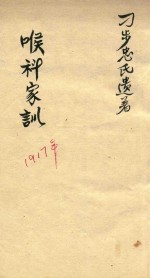 刁步忠氏遺著
喉科家訓
1917年